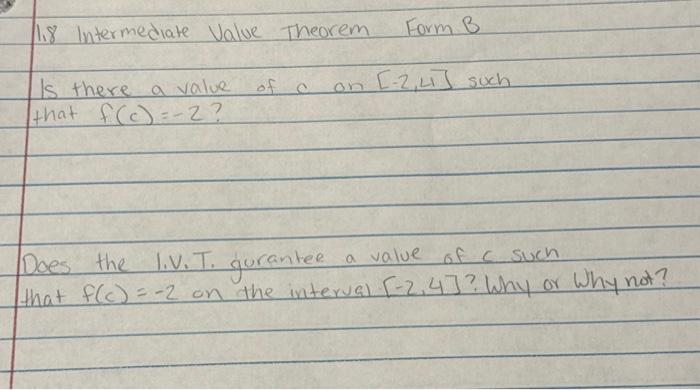 1.8 Intermediate Value Theorem Form B
Is there a value of c on [-2,4] such
that f(c)=-2?
Does the I.V.T. gurantee a value of c such
that f(c)=-2 on the interval [-2,4]? Why or Why not?